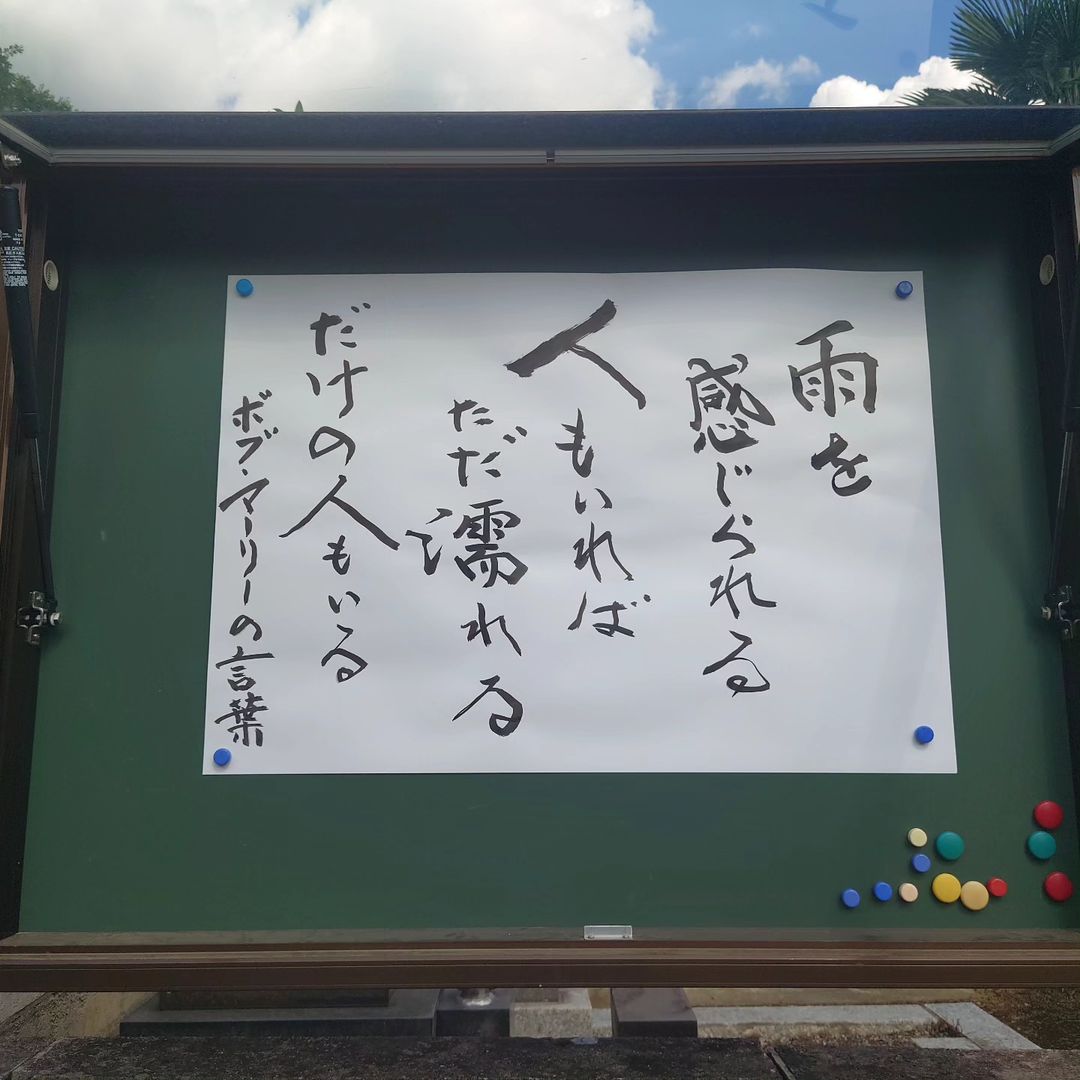 雨を
感じられる
人もいれば
ただ濡れる
だけの人もいる
ボブ・マーリーの言葉